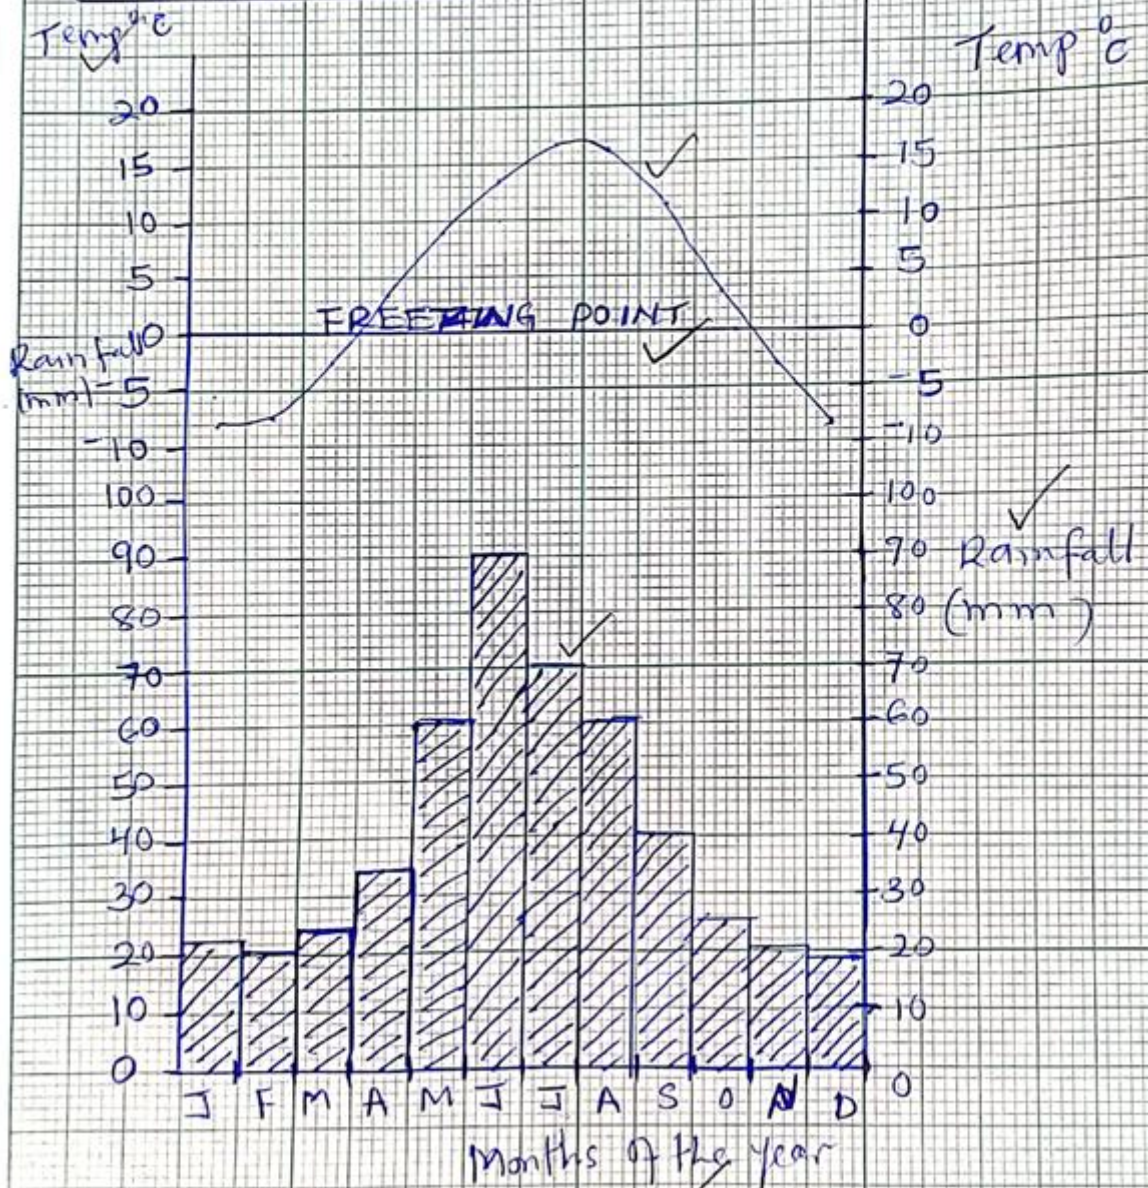 Temp °C
Temp °C
20
15
10
5
0
Rainfall
(mm)
-5
-10
100
90
80
70
60
50
40
30
20
10
0
FREEZING POINT
20
15
10
5
0
-5
-10
100
70
80
70
60
50
40
30
20
10
0
Rainfall
(mm)
J F M A M J J A S O N D
Months of the year